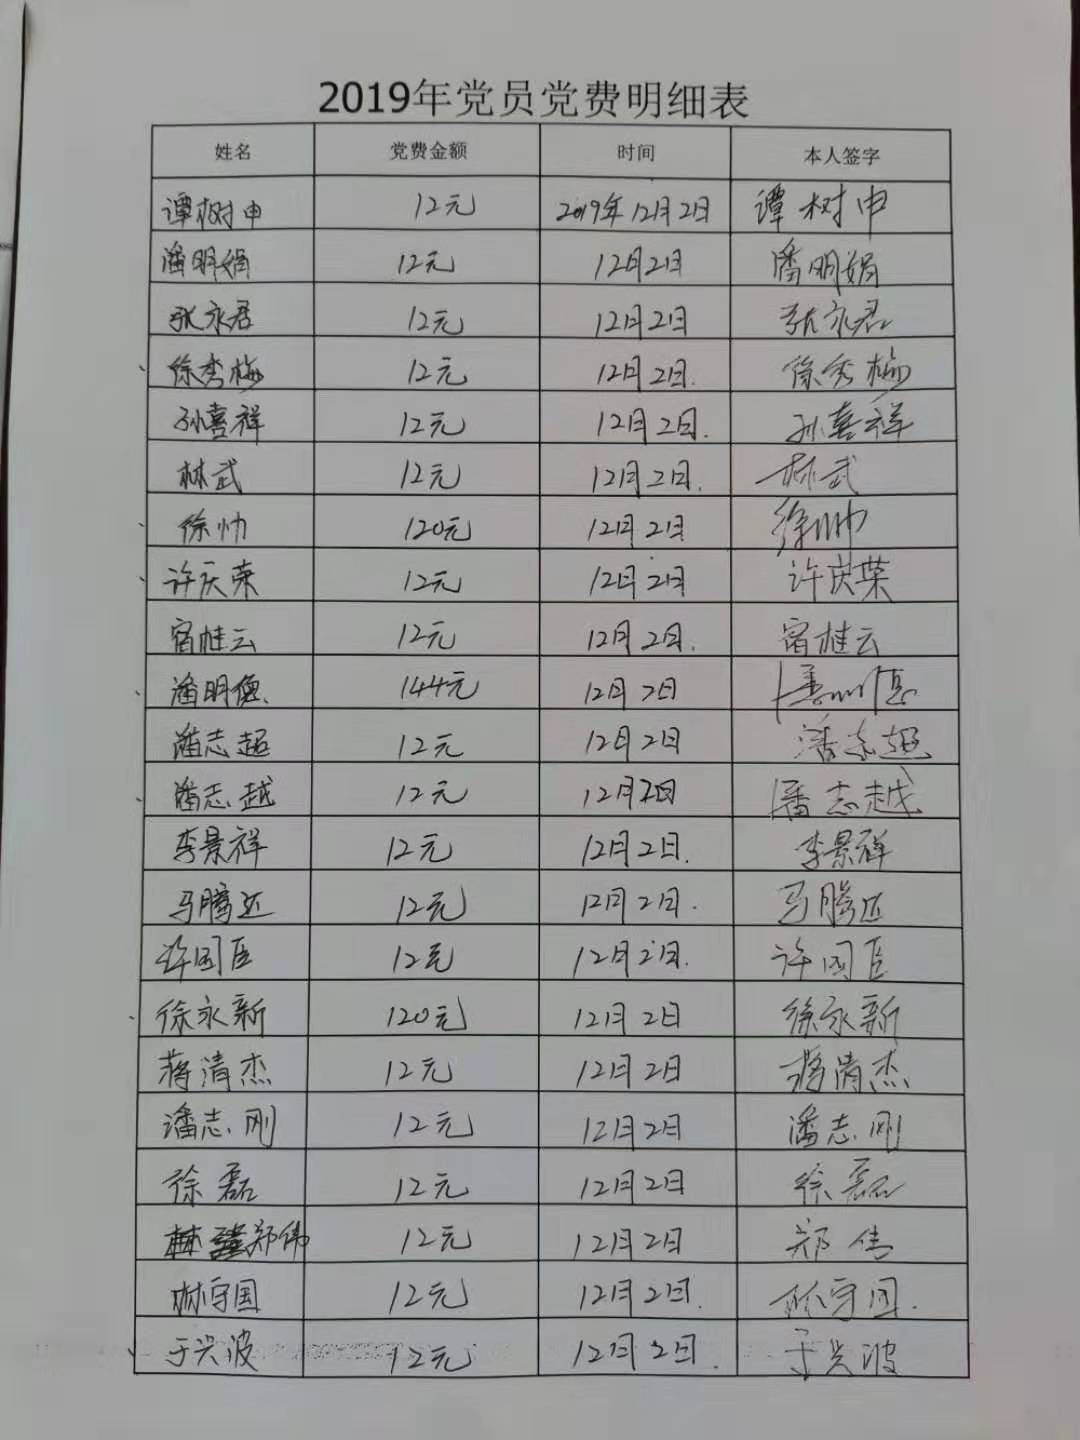 2019年党员党费明细表
姓名 党费金额 时间 本人签字
谭树申 12元 2019年12月2日 谭树申
潘明娟 12元 12月2日 潘明娟
张永君 12元 12月2日 张永君
徐秀梅 12元 12月2日. 徐秀梅
孙喜祥 12元 12月2日. 孙喜祥
林武 12元 12月2日. 林武
徐帅 120元 12月2日 徐帅
许庆荣 12元 12月2日 许庆荣
宿桂云 12元 12月2日. 宿桂云
潘明德 144元 12月2日 潘明德
潘志超 12元 12月2日 潘志超
潘志越 12元 12月2日 潘志越
李景祥 12元 12月2日. 李景祥
马腾近 12元 12月2日. 马腾近
许国臣 12元 12月2日. 许国臣
徐永新 120元 12月2日 徐永新
蒋清杰 12元 12月2日 蒋清杰
潘志刚 12元 12月2日 潘志刚
徐磊 12元 12月2日 徐磊
郑伟 12元 12月2日 郑伟
林守国 12元 12月2日. 林守国.
于兴波 12元 12月2日. 于兴波